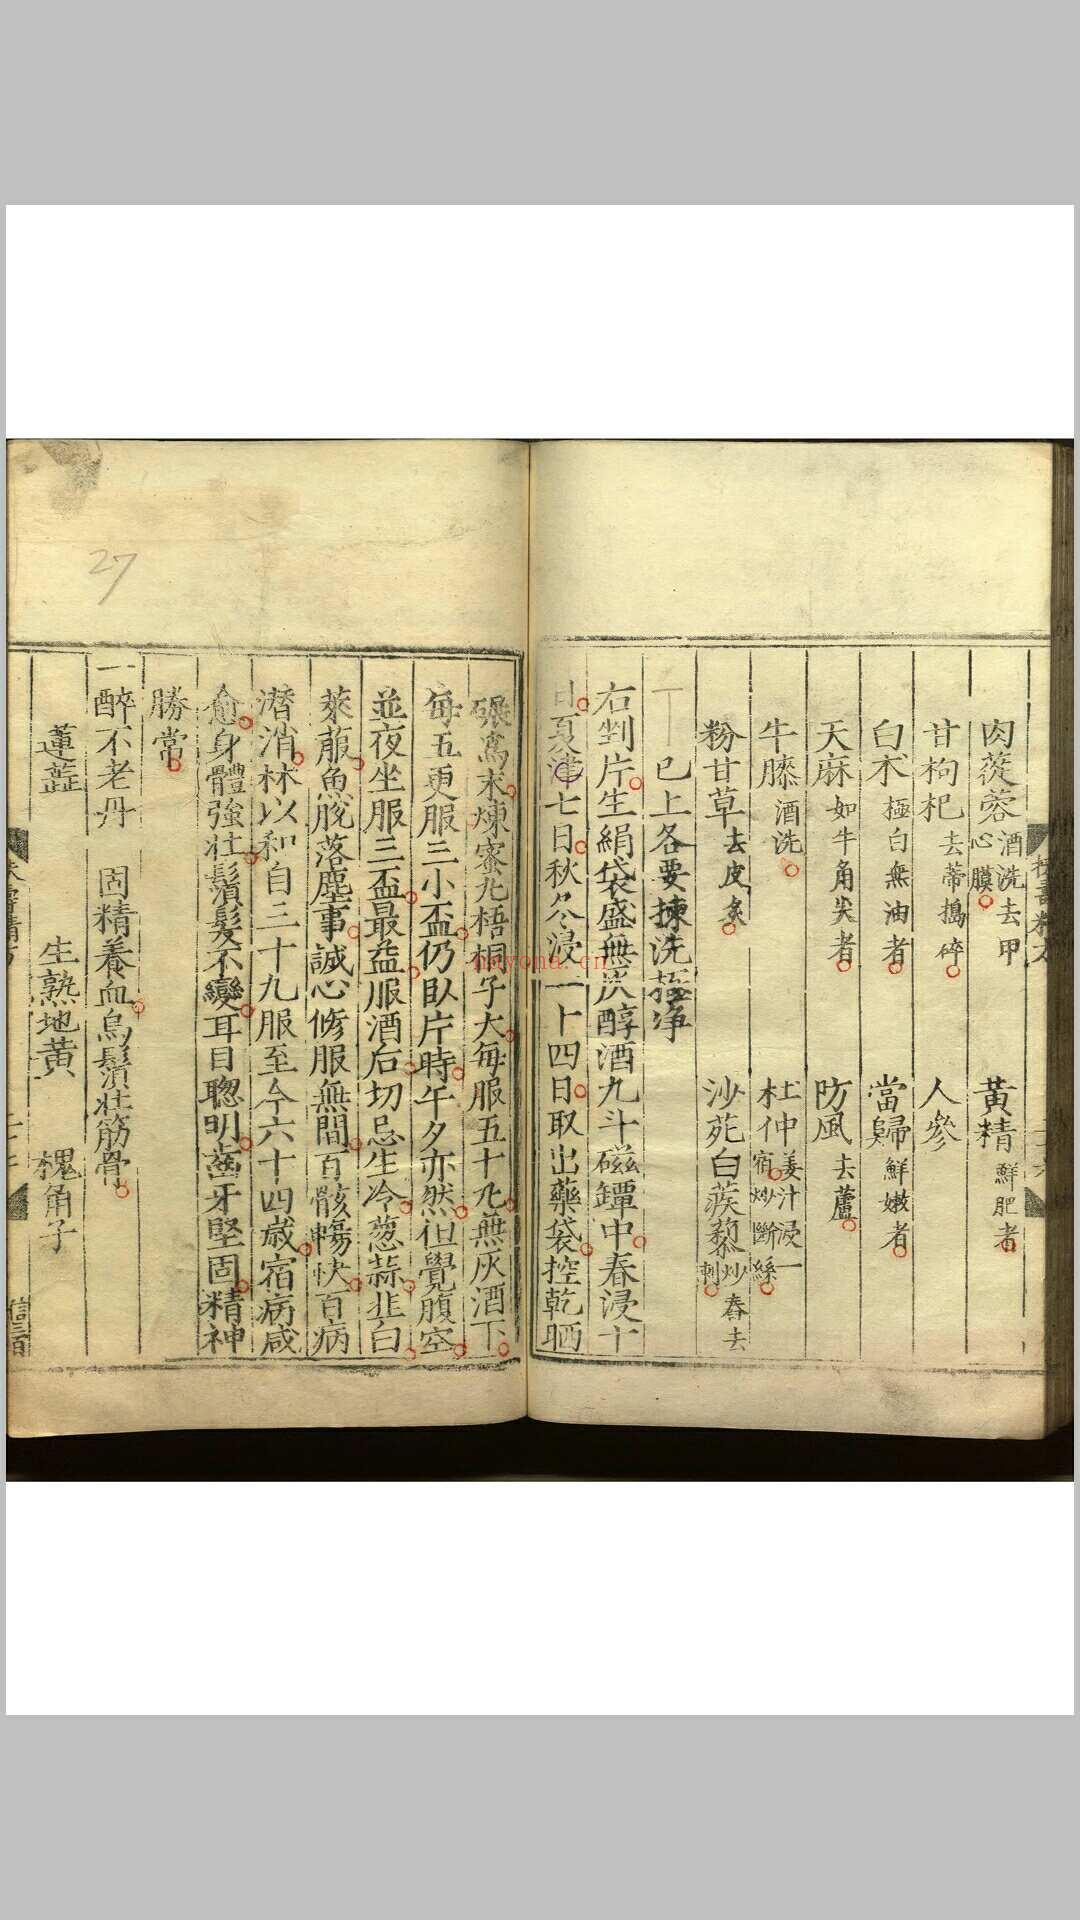 肉蓯蓉酒洗去甲心膜 黃精鮮肥者
甘枸杞去蒂搗碎 人參
白朮極白無油者 當歸鮮嫩者
天麻如牛角尖者 防風去蘆
牛膝酒洗 杜仲姜汁浸一宿炒斷絲
粉甘草去皮炙 沙苑白蒺藜炒舂去刺
已上各要揀洗極淨
右剉片生絹袋盛無灰醇酒九斗磁罈中春浸十
日夏浸七日秋冬浸二十四日取出藥袋控乾晒
碾爲末煉蜜丸梧桐子大每服五十丸無灰酒下
每五更服三小盃仍臥片時午夕亦然但覺腹空
並夜坐服三盃最益服酒后切忌生冷葱蒜韭白
萊菔魚脫落塵事誠心修服無間百骸暢快百病
潛消林以和自三十九服至今六十四歲宿病咸
愈身體強壯鬚髮不變耳目聰明齒牙堅固精神
勝常
一醉不老丹 固精養血烏鬚壯筋骨
蓮蕋 生熟地黃 槐角子
信三百
27
hayona.cn